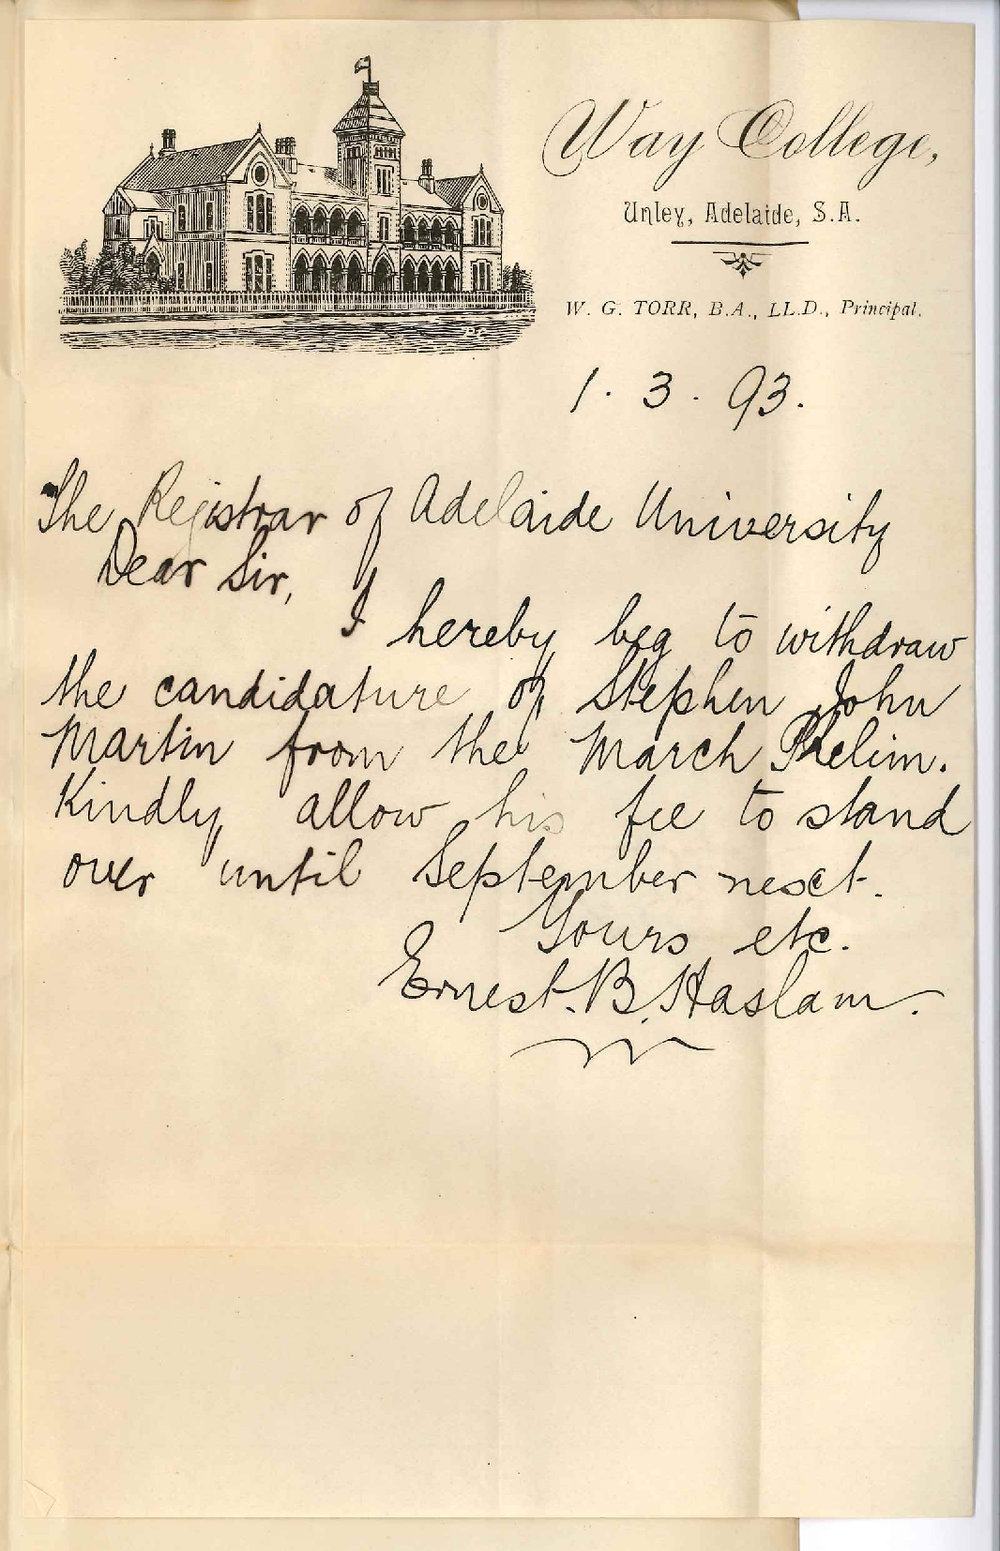 Way College,
Unley, Adelaide, S.A.
W. G. TORR, B.A., LL.D., Principal.
1. 3. 93.
The Registrar of Adelaide University
Dear Sir,
I hereby beg to withdraw
the candidature of Stephen John
Martin from the March Prelim.
Kindly allow his fee to stand
over until September next.
Yours etc.
Ernest. B. Haslam.